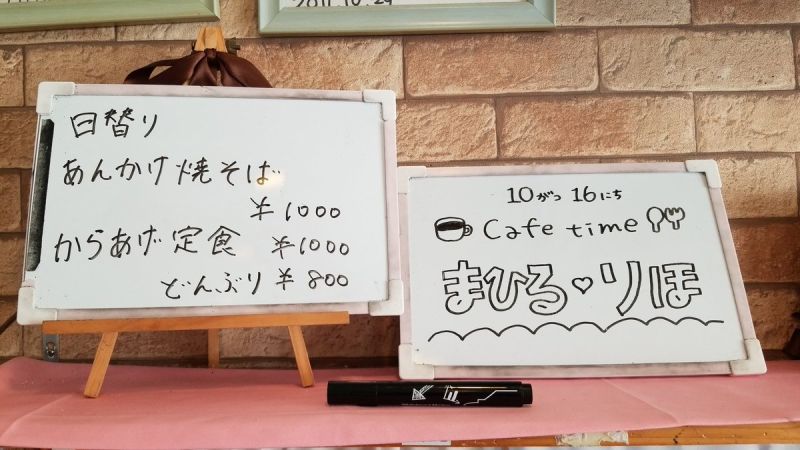 2011.10.29
日替り
あんかけ焼そば
¥1000
からあげ定食 ¥1000
どんぶり ¥800
10がつ 16にち
Cafe time
まひる♡りほ